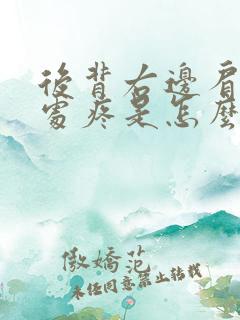 後背右邊肩
處疼是怎麼
傲嬌范
未经同意禁止转载